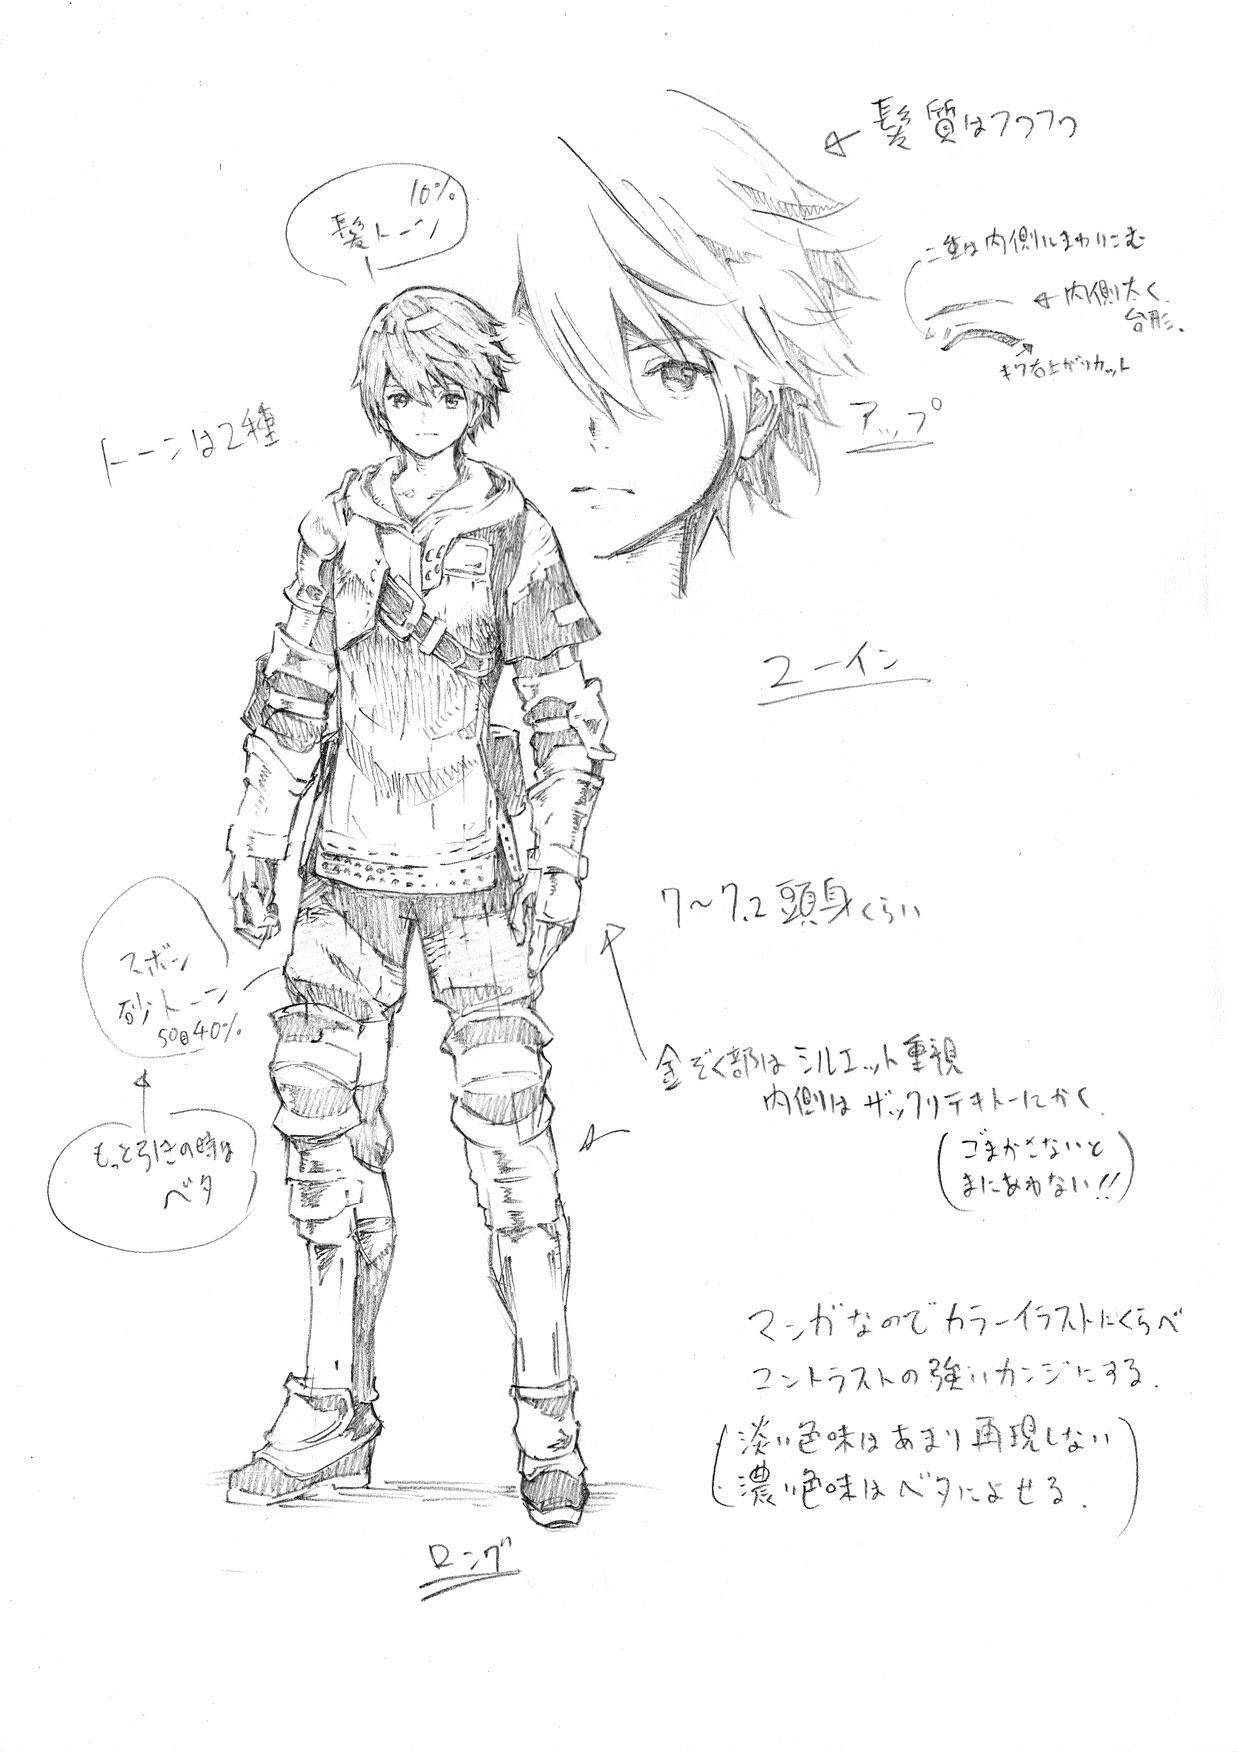 髪質はフワフワ
10%
髪トーン
二重は内側にまわりこむ
内側太く
台形.
キワ右上がりカット
アップ
トーンは2種
ユーイン
7～7.2頭身くらい
ズボン
砂トーン
40%
金ぞく部はシルエット重視
内側はザックリテキトーにかく.
(ごまかさないと
まにあわない!!)
もっと引きの時は
ベタ
マンガなのでカラーイラストにくらべ
コントラストの強いカンジにする.
(淡い色味はあまり再現しない
濃い色味はベタによせる.)
ロング